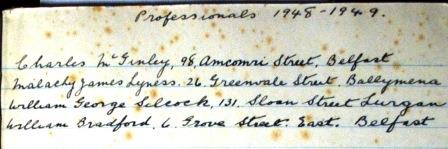 Professionals 1948-1949.
Charles McGinley, 98, Amcomri Street, Belfast
Malachy James Lyness. 26. Greenvale Street. Ballymena
William George Silcock, 131, Sloan Street Lurgan
William Bradford, 6. Grove Street. East. Belfast